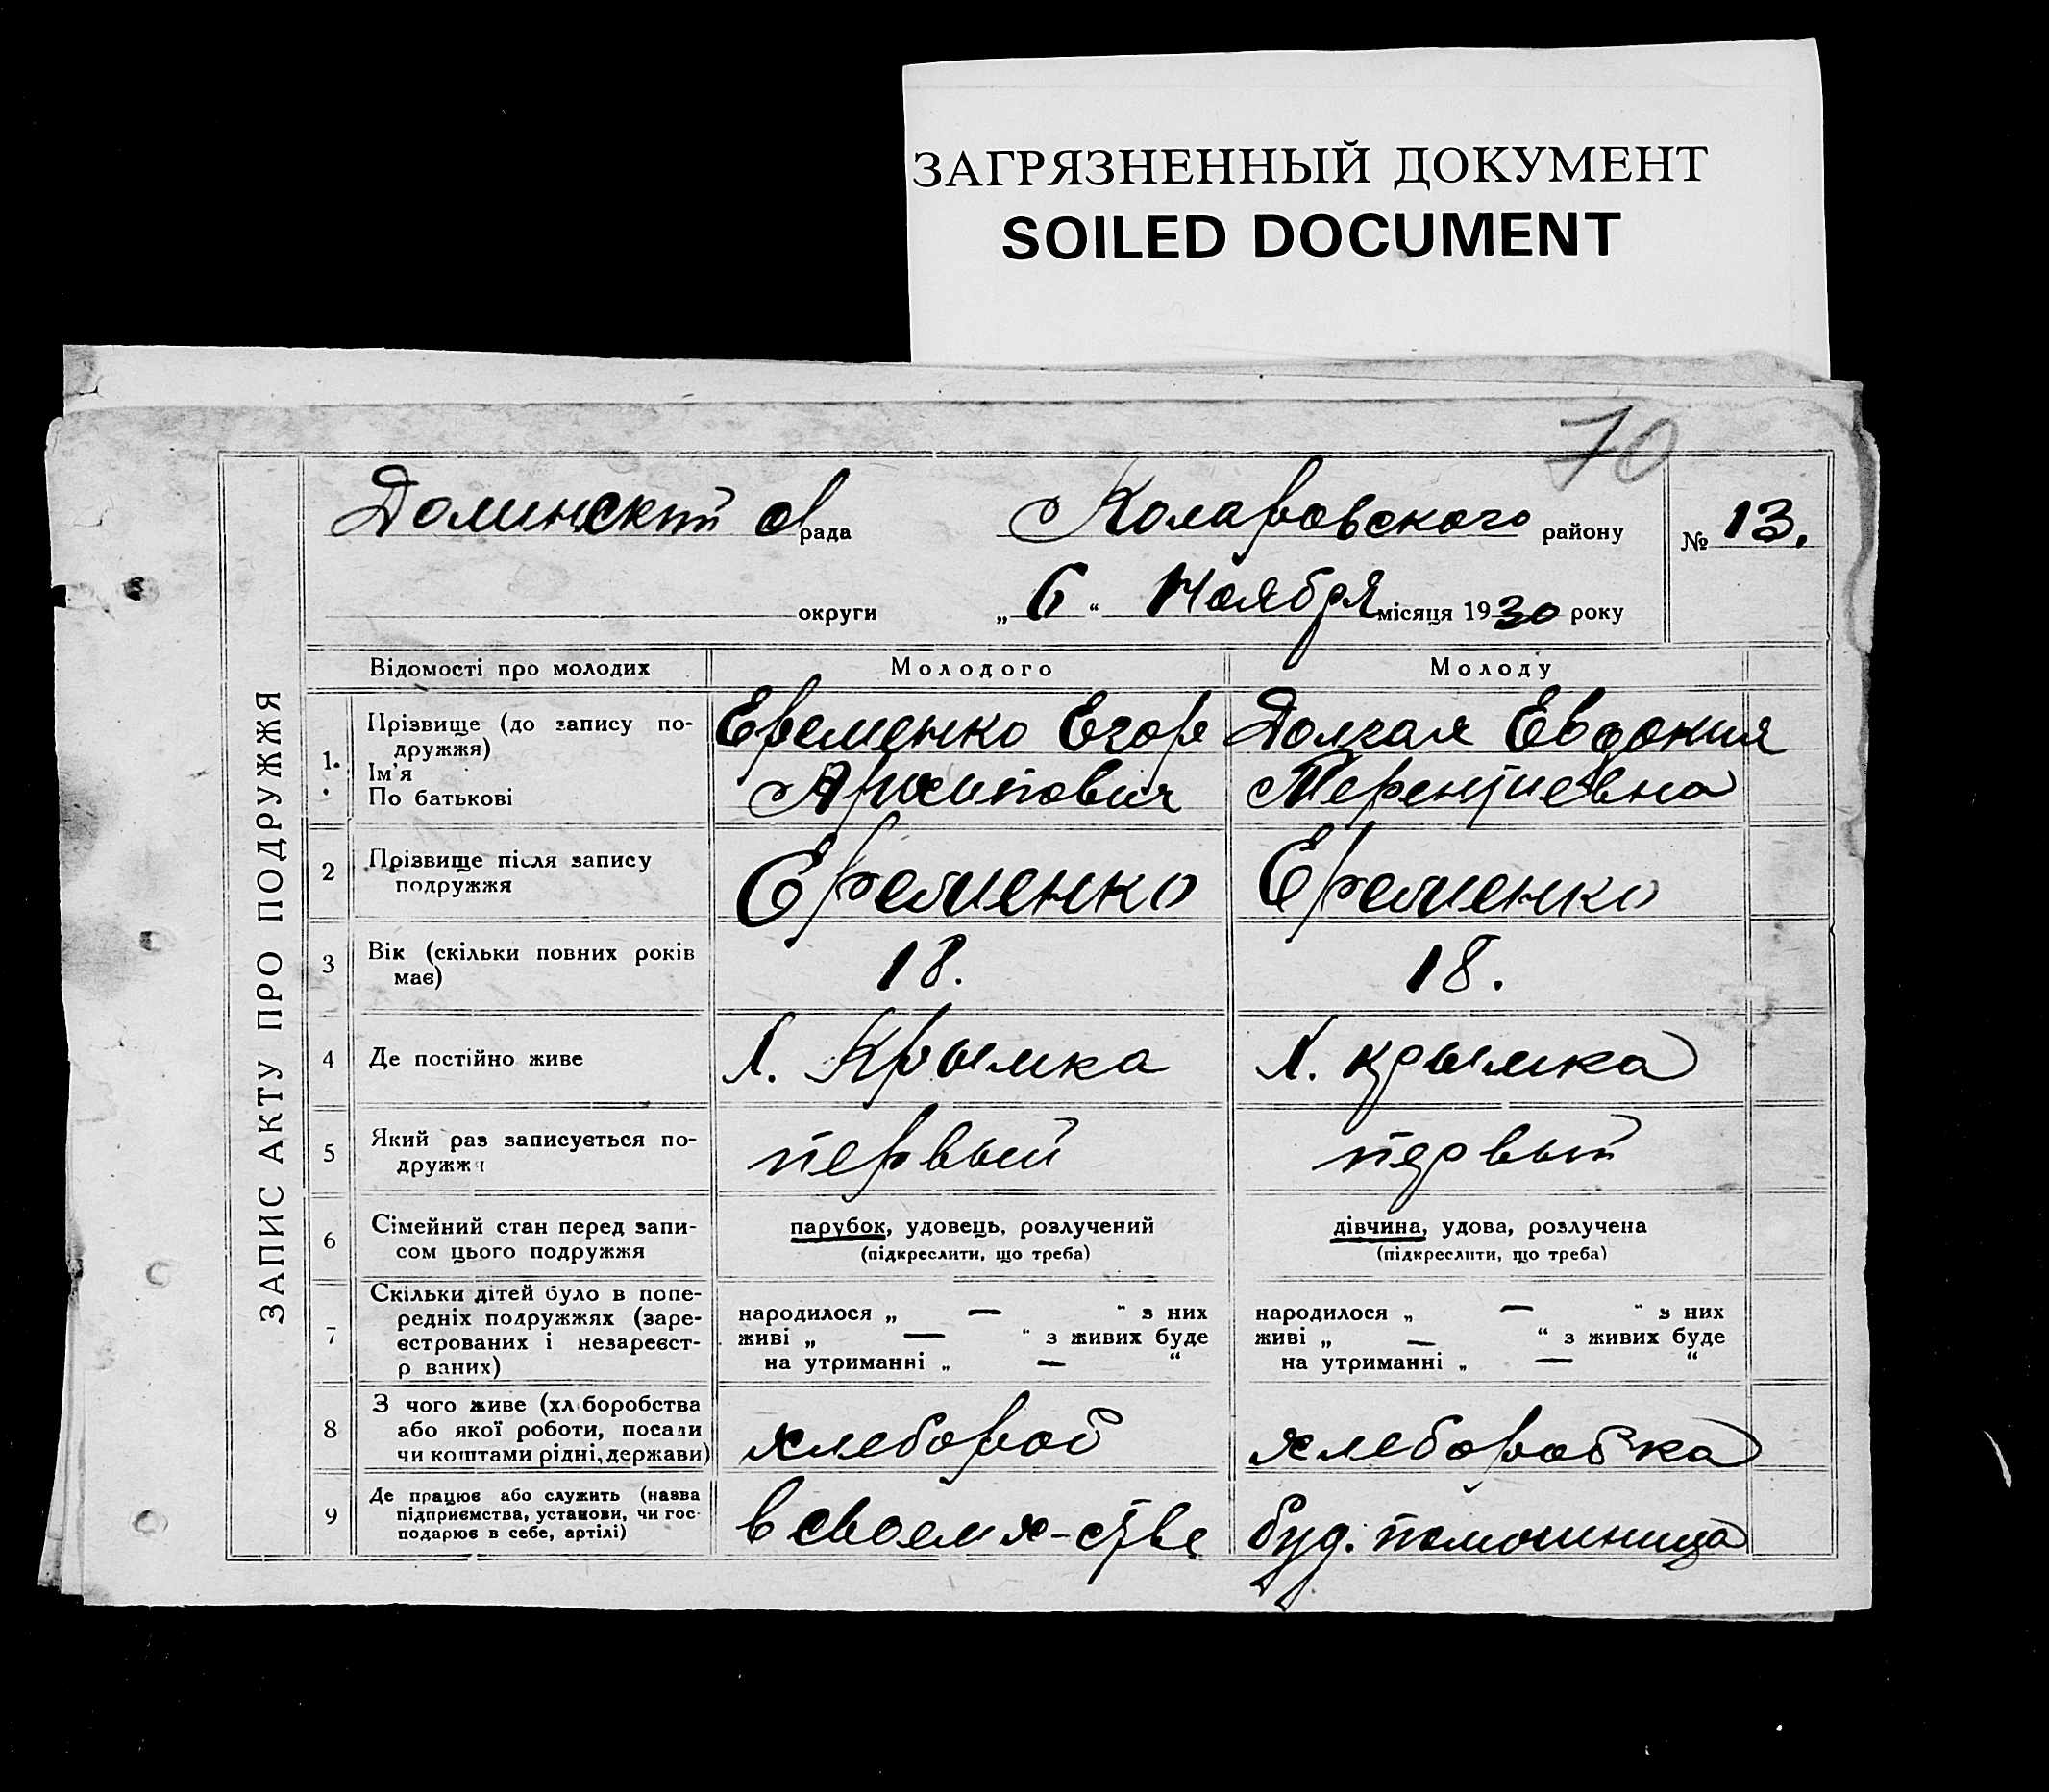 ЗАГРЯЗНЕННЫЙ ДОКУМЕНТ
SOILED DOCUMENT
70
ЗАПИС АКТУ ПРО ПОДРУЖЖЯ
Долинский с/рада Коларовского району № 13.
округи „6“ Ноября місяця 1930 року
Відомості про молодих Молодого Молоду
1. Прізвище (до запису по-
дружжя) Еременко Егор Долгая Евдокия
Ім'я
По батькові Архипович Терентиевна
2 Прізвище після запису
подружжя Еременко Еременко
3 Вік (скільки повних років
має) 18. 18.
4 Де постійно живе Х. Крымка Х. Крымка
5 Який раз записується по-
дружжя первый первый
6 Сімейний стан перед запи-
сом цього подружжя
парубок, удовець, розлучений дівчина, удова, розлучена
(підкреслити, що треба) (підкреслити, що треба)
7 Скільки дітей було в попе-
редніх подружжях (заре-
єстрованих і незареєст-
р ваних)
народилося „ — “ з них народилося „ — “ з них
живі „ — “ з живих буде живі „ — “ з живих буде
на утриманні „ — “ на утриманні „ — “
8 З чого живе (хліборобства
або якої роботи, посади
чи коштами рідні, держави)
хлебороб хлеборобка
9 Де працює або служить (назва
підприємства, установи, чи гос-
подарює в себе, артілі)
в своем х-стве буд. помошница